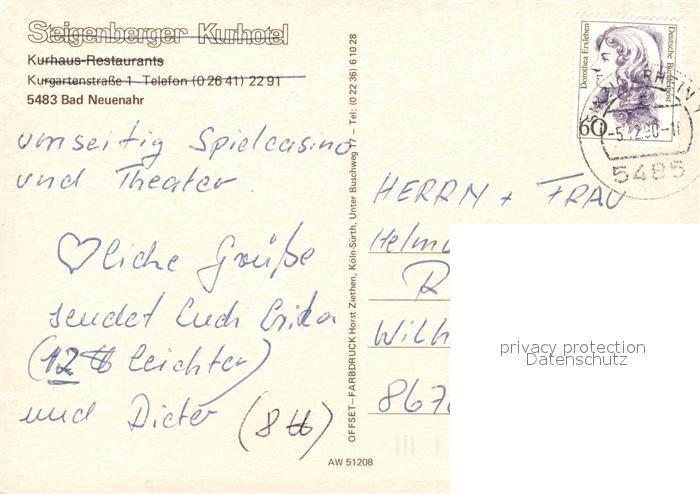 Steigenberger Kurhotel
Kurhaus-Restaurants
Kurgartenstraße 1 Telefon (0 26 41) 22 91
5483 Bad Neuenahr
umseitig Spielcasino
und Theater.
♡liche Grüße
sendet Euch Erika
(12 ℔ leichter)
und Dieter (8 ℔)
OFFSET–FARBDRUCK Horst Ziethen, Köln-Sürth, Unter Buschweg 17 – Tel: (0 22 36) 6 10 28
AW 51208
Dorothea Erxleben
Deutsche Bundespost
60
-5.12.90-1
5485
HERRN + FRAU
Helmu
R
Wilh
867
privacy protection
Datenschutz